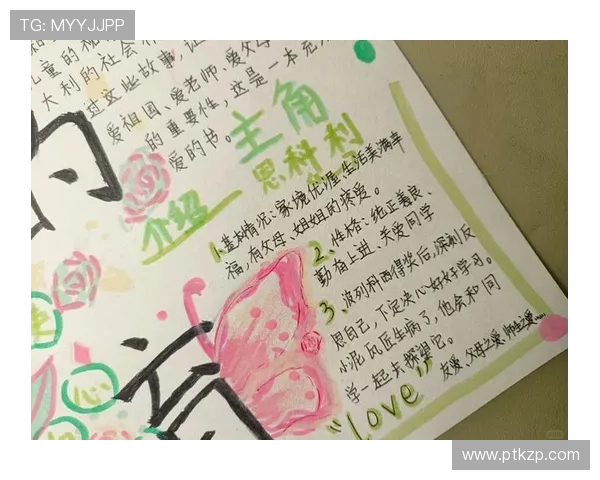 TG: MYYJJPP
和
儿童的视
大利的社会
过这些故事,让
爱祖国、爱老师、爱父母
的重要性,这是一本充
爱的书。
的
主角
恩科利
介绍
1、基本情况:家境优渥,生活美满幸
福,有父母、姐姐的疼爱。
2、性格:纯正善良、
勤奋上进、关爱同学
3、波列科西得奖后,深刻反
思自己,下定决心好好学习。
小泥瓦匠生病了,他会和同
学一起去探望他。
友爱、父母之爱、师生之爱……
"Love"
心
www.ptkzp.com